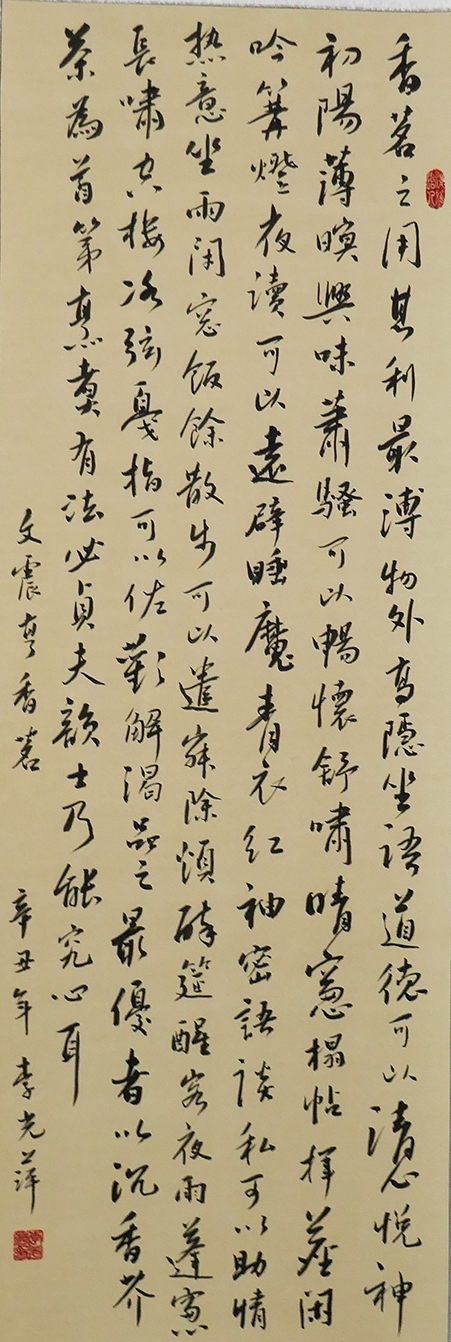 香茗之用其利最溥物外高隐坐语道德可以清心悦神
初陽薄暝興味蕭騷可以暢懷舒嘯晴窻榻帖揮麈閑
吟篝燈夜讀可以遠辟睡魔青衣红袖密語谈私可以助情
热意坐雨闭窓飯餘散步可以遣寂除烦醉筵醒客夜雨蓬窓
長嘯空樓冰弦戛指可以佐歡解渴品之最優者以沉香芥
茶為首第烹煮有法必貞夫韻士乃能究心耳
文震亨香茗
辛丑年李光萍